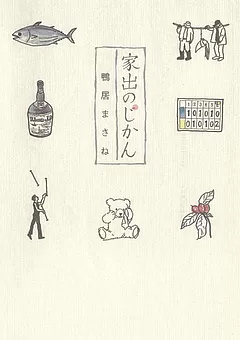 家出のじかん
鴨居まさね